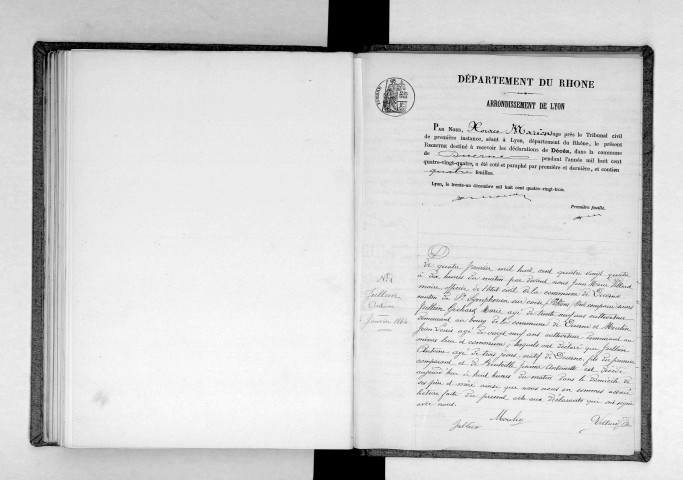 DÉPARTEMENT DU RHONE
ARRONDISSEMENT DE LYON
PAR NOUS, Juge près le Tribunal civil
de première instance, séant à Lyon, département du Rhône, le présent
REGISTRE destiné à recevoir les déclarations de Décès, dans la commune
de Duerne pendant l'année mil huit cent
quatre-vingt-quatre, a été coté et paraphé par première et dernière, et contien
quatre feuilles.
Lyon, le trente-un décembre mil huit cent quatre-vingt-trois.
Première feuille.
N° 1
Jullien
Antoine
Janvier 1884
Le quatre Janvier mil huit cent quatre vingt quatre
à dix heures du matin par devant nous Jean Marie Villard
maire officier de l'état civil de la commune de Duerne
canton de St Symphorien sur coise, Rhône, ont comparu
Jullien Marie agé de trente neuf ans cultivateur
demeurant au bourg de la commune de Duerne et
Jean Louis agé de vingt neuf ans cultivateur demeurant au
même lieu et commune; lesquels ont déclaré que Jullien
Antoine agé de trois jours natif de Duerne, fils du premier
comparant et de Jeanne Antoinette est décédé
aujourd'hui à huit heures du matin dans le domicile de
ses père et mère ainsi que nous nous en sommes assuré
lecture faite du présent acte aux déclarants qui ont signé
avec nous.
Jullien
Villard